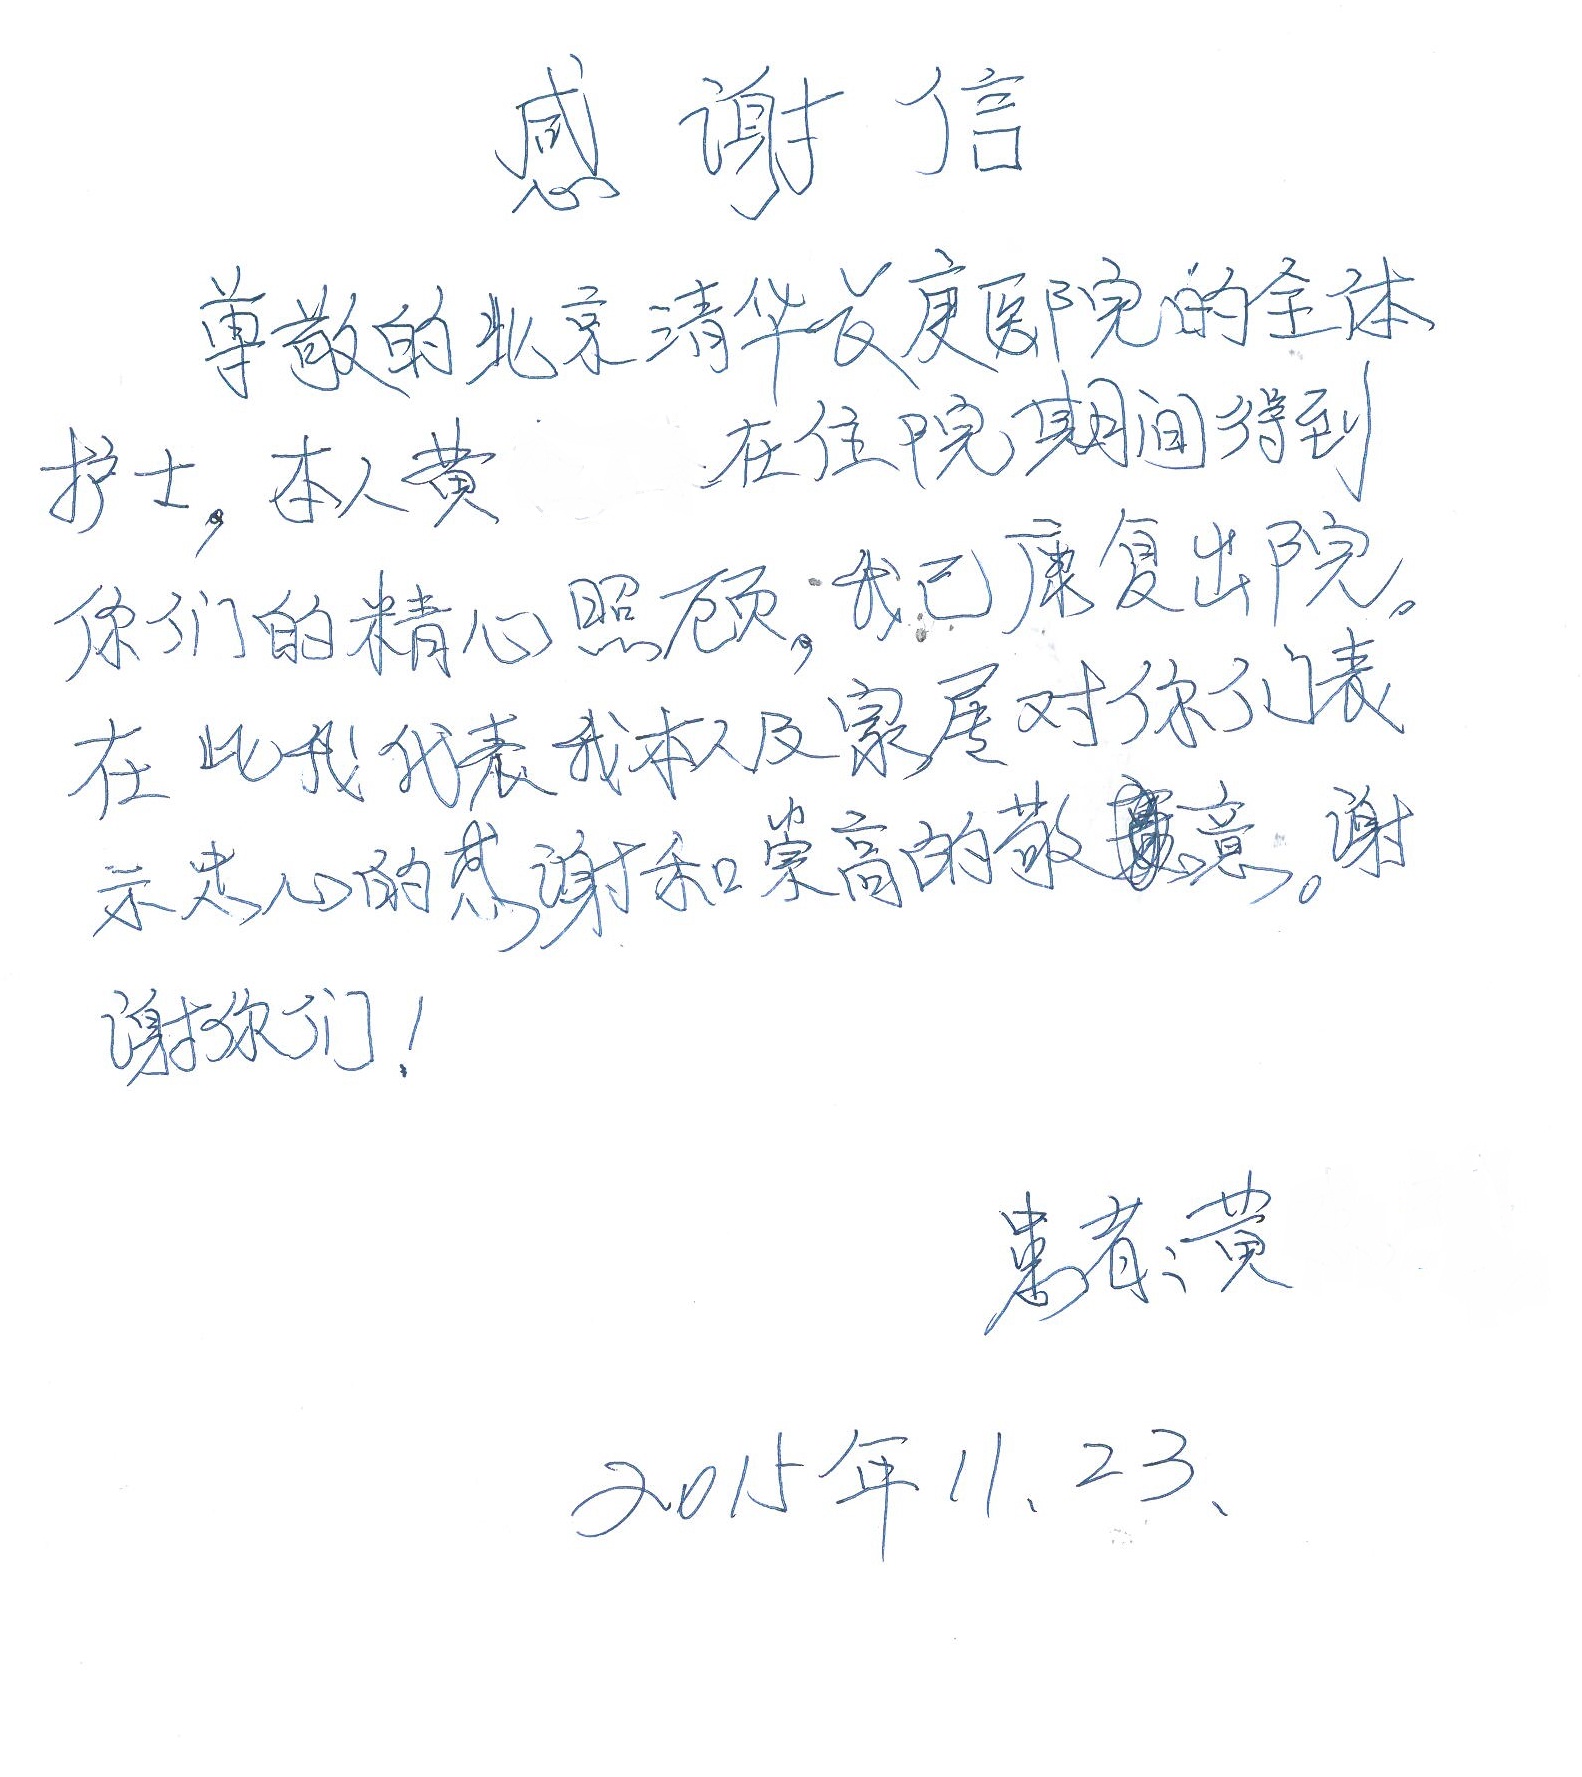 感谢信
尊敬的北京清华长庚医院的全体
护士，本人黄 在住院期间得到
你们的精心照顾，我已康复出院。
在此我代表我本人及家属对你们表
示忠心的感谢和崇高的敬意。谢
谢你们！
患者：黄
2015年11、23、